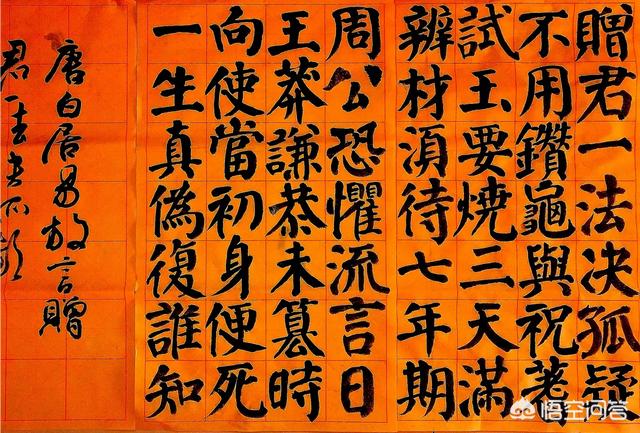 贈君一法决孤疑
不用鑽龜與祝蓍
試玉要燒三天滿
辨材湏待七年期
周公恐懼流言日
王莽謙恭未篡時
向使當初身便死
一生真偽復誰知
唐白居易放言贈
君一法
悟空问答